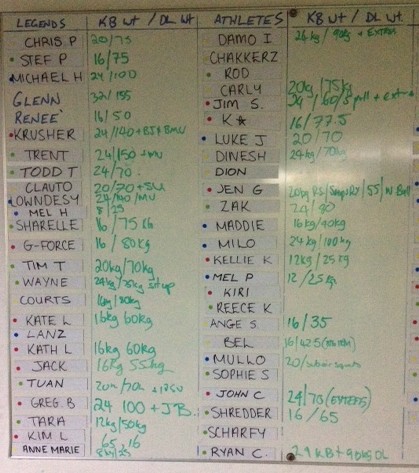 LEGENDS KB wt / DL wt
CHRIS P 20/75
STEF P 16/75
MICHAEL H 24/100
GLENN 32/155
RENEE 16/50
KRUSHER 24/140 + BJ + BMU
TRENT 24/150 + MU
TODD T 24/70
CLAUTO 20/70 + SU
LOWNDESY 24/100 MU
MEL H 8/25
SHARELLE 16/75
G-FORCE 16/80kg
TIM T 20kg/70kg
WAYNE 24kg/75kg sit up
COURTS
KATE L 16kg 60kg
LANZ
KATH L 16kg 60kg
JACK 16kg 55kg
TUAN
GREG. B 24 100 + JB
TARA 12kg/50kg
KIM L 65, 16
ANNE MARIE
ATHLETES KB wt / DL wt.
DAMO I 24kg / 90kg + EXTRAS
CHAKKERZ
ROD
CARLY 20kg/75kg
JIM S.
K★ 16/77.5
LUKE J 20/70
DINESH 24kg/70kg
DION
JEN G
ZAK
MADDIE 16kg/40kg
MILO 24kg/100kg
KELLIE K 12kg/25kg
MEL P 12/25kg
KIRI
REECE K
ANGE S 16/35
BEL 16/42.5 (EXTRA)
MULLO
SOPHIE S
JOHN C 24/70 (EXTRAS)
SHREDDER 16/65
SCHARFY
RYAN C.